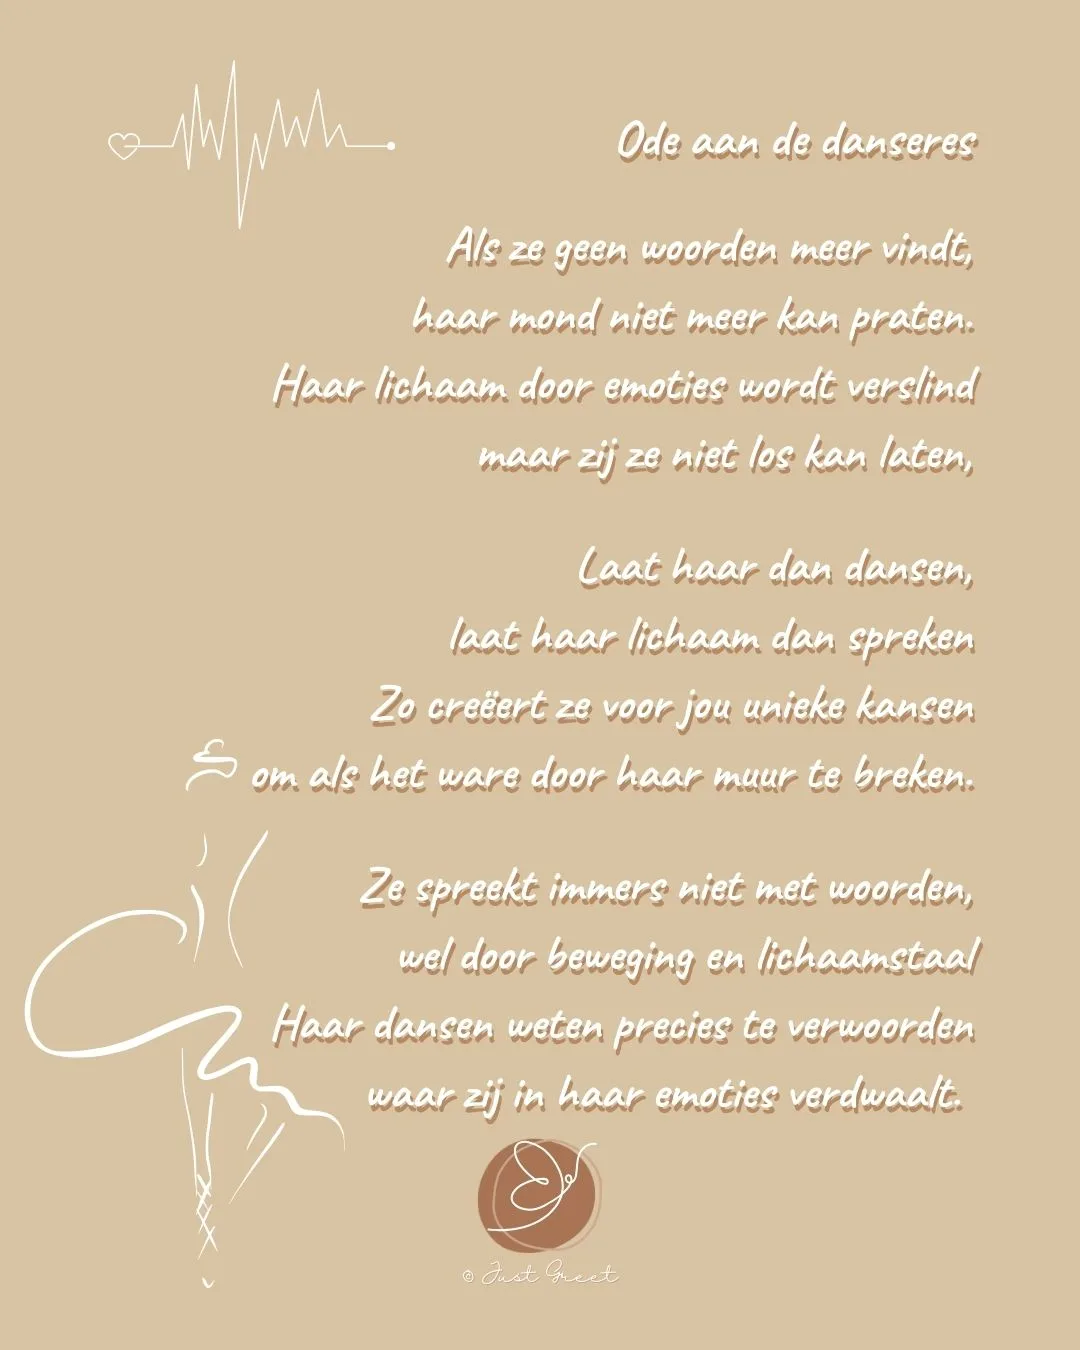 Ode aan de danseres
Als ze geen woorden meer vindt,
haar mond niet meer kan praten.
Haar lichaam door emoties wordt verslind
maar zij ze niet los kan laten,
Laat haar dan dansen,
laat haar lichaam dan spreken
Zo creëert ze voor jou unieke kansen
om als het ware door haar muur te breken.
Ze spreekt immers niet met woorden,
wel door beweging en lichaamstaal
Haar dansen weten precies te verwoorden
waar zij in haar emoties verdwaalt.
© Just Greet